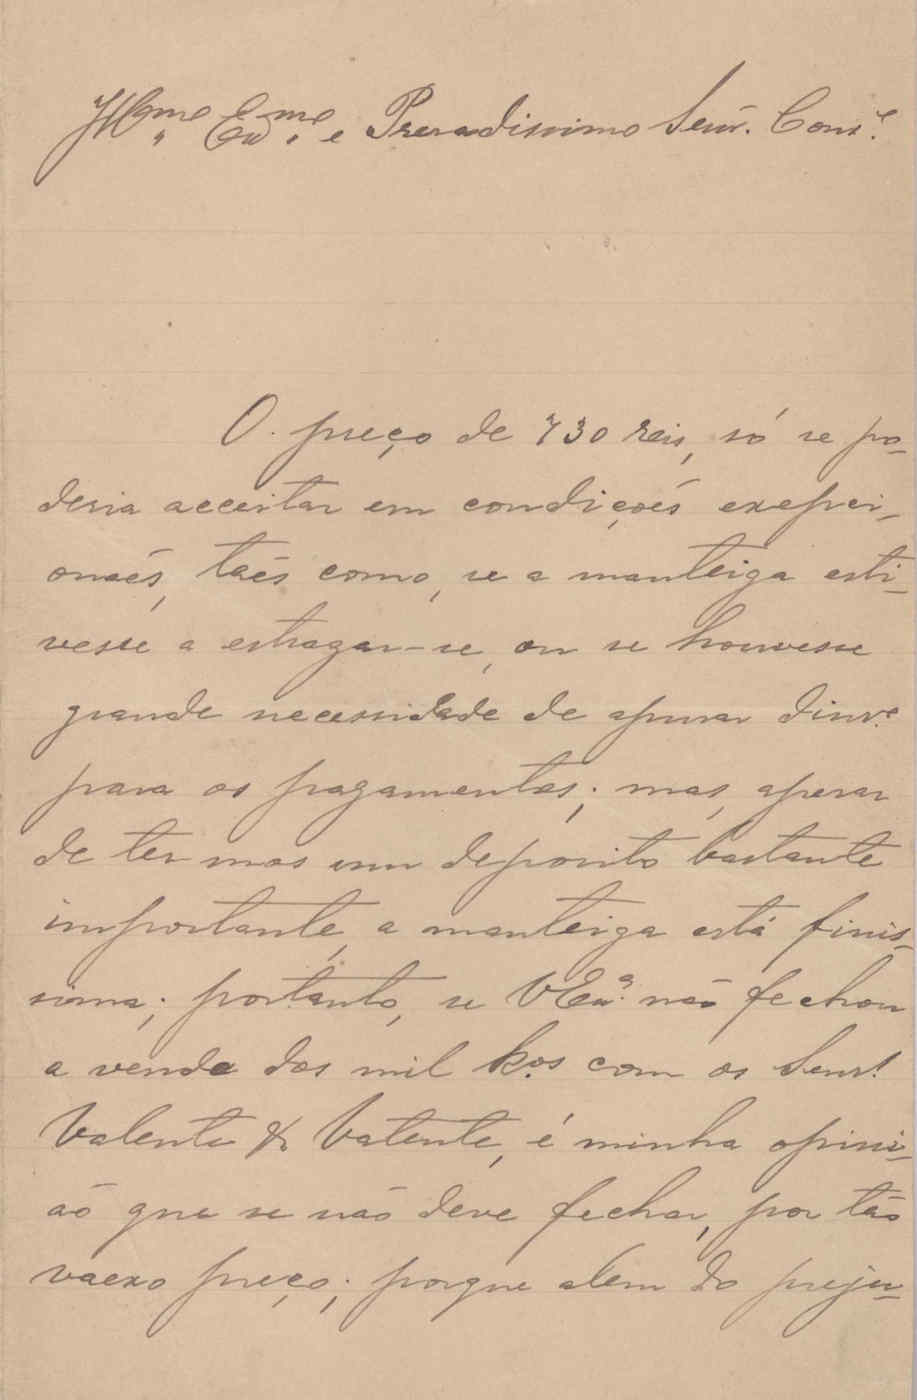 Illmo Exmo e Presadissimo Senr. Conso.
O preço de 730 reis, só se po-
deria acceitar em condições exepci-
onaés, taés como, se a manteiga esti-
vesse a estragar-se, ou se houvesse
grande necessidade de apurar dinro
para os pagamentos; mas, apesar
de ter mos um deposito bastante
importante, a manteiga está finis-
sima; portanto, se VExa. não fechou
a venda dos mil kos com os Senrs
Valente & Valente, é minha opini-
aõ que se não deve fechar, por tão
vaexo preço; porque alem do preju-